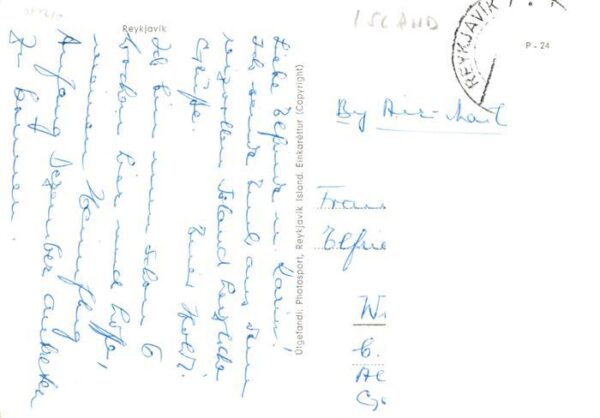 ISLAND
REYKJAVÍK
P - 24
Reykjavik
Liebe Elfriede u. Karin!
Ich sende Euch aus dem
reizvollen Island herzliche
Grüße.
Euer
Ich bin nun schon 6
Wochen hier und hoffe,
meinen Heimflug
Anfang Dezember antreten
zu können.
Útgefandi: Photosport, Reykjavik Island. Einkaréttur (Copyright)
By Air-Mail
Frau
Elfrie
W
b.
Al